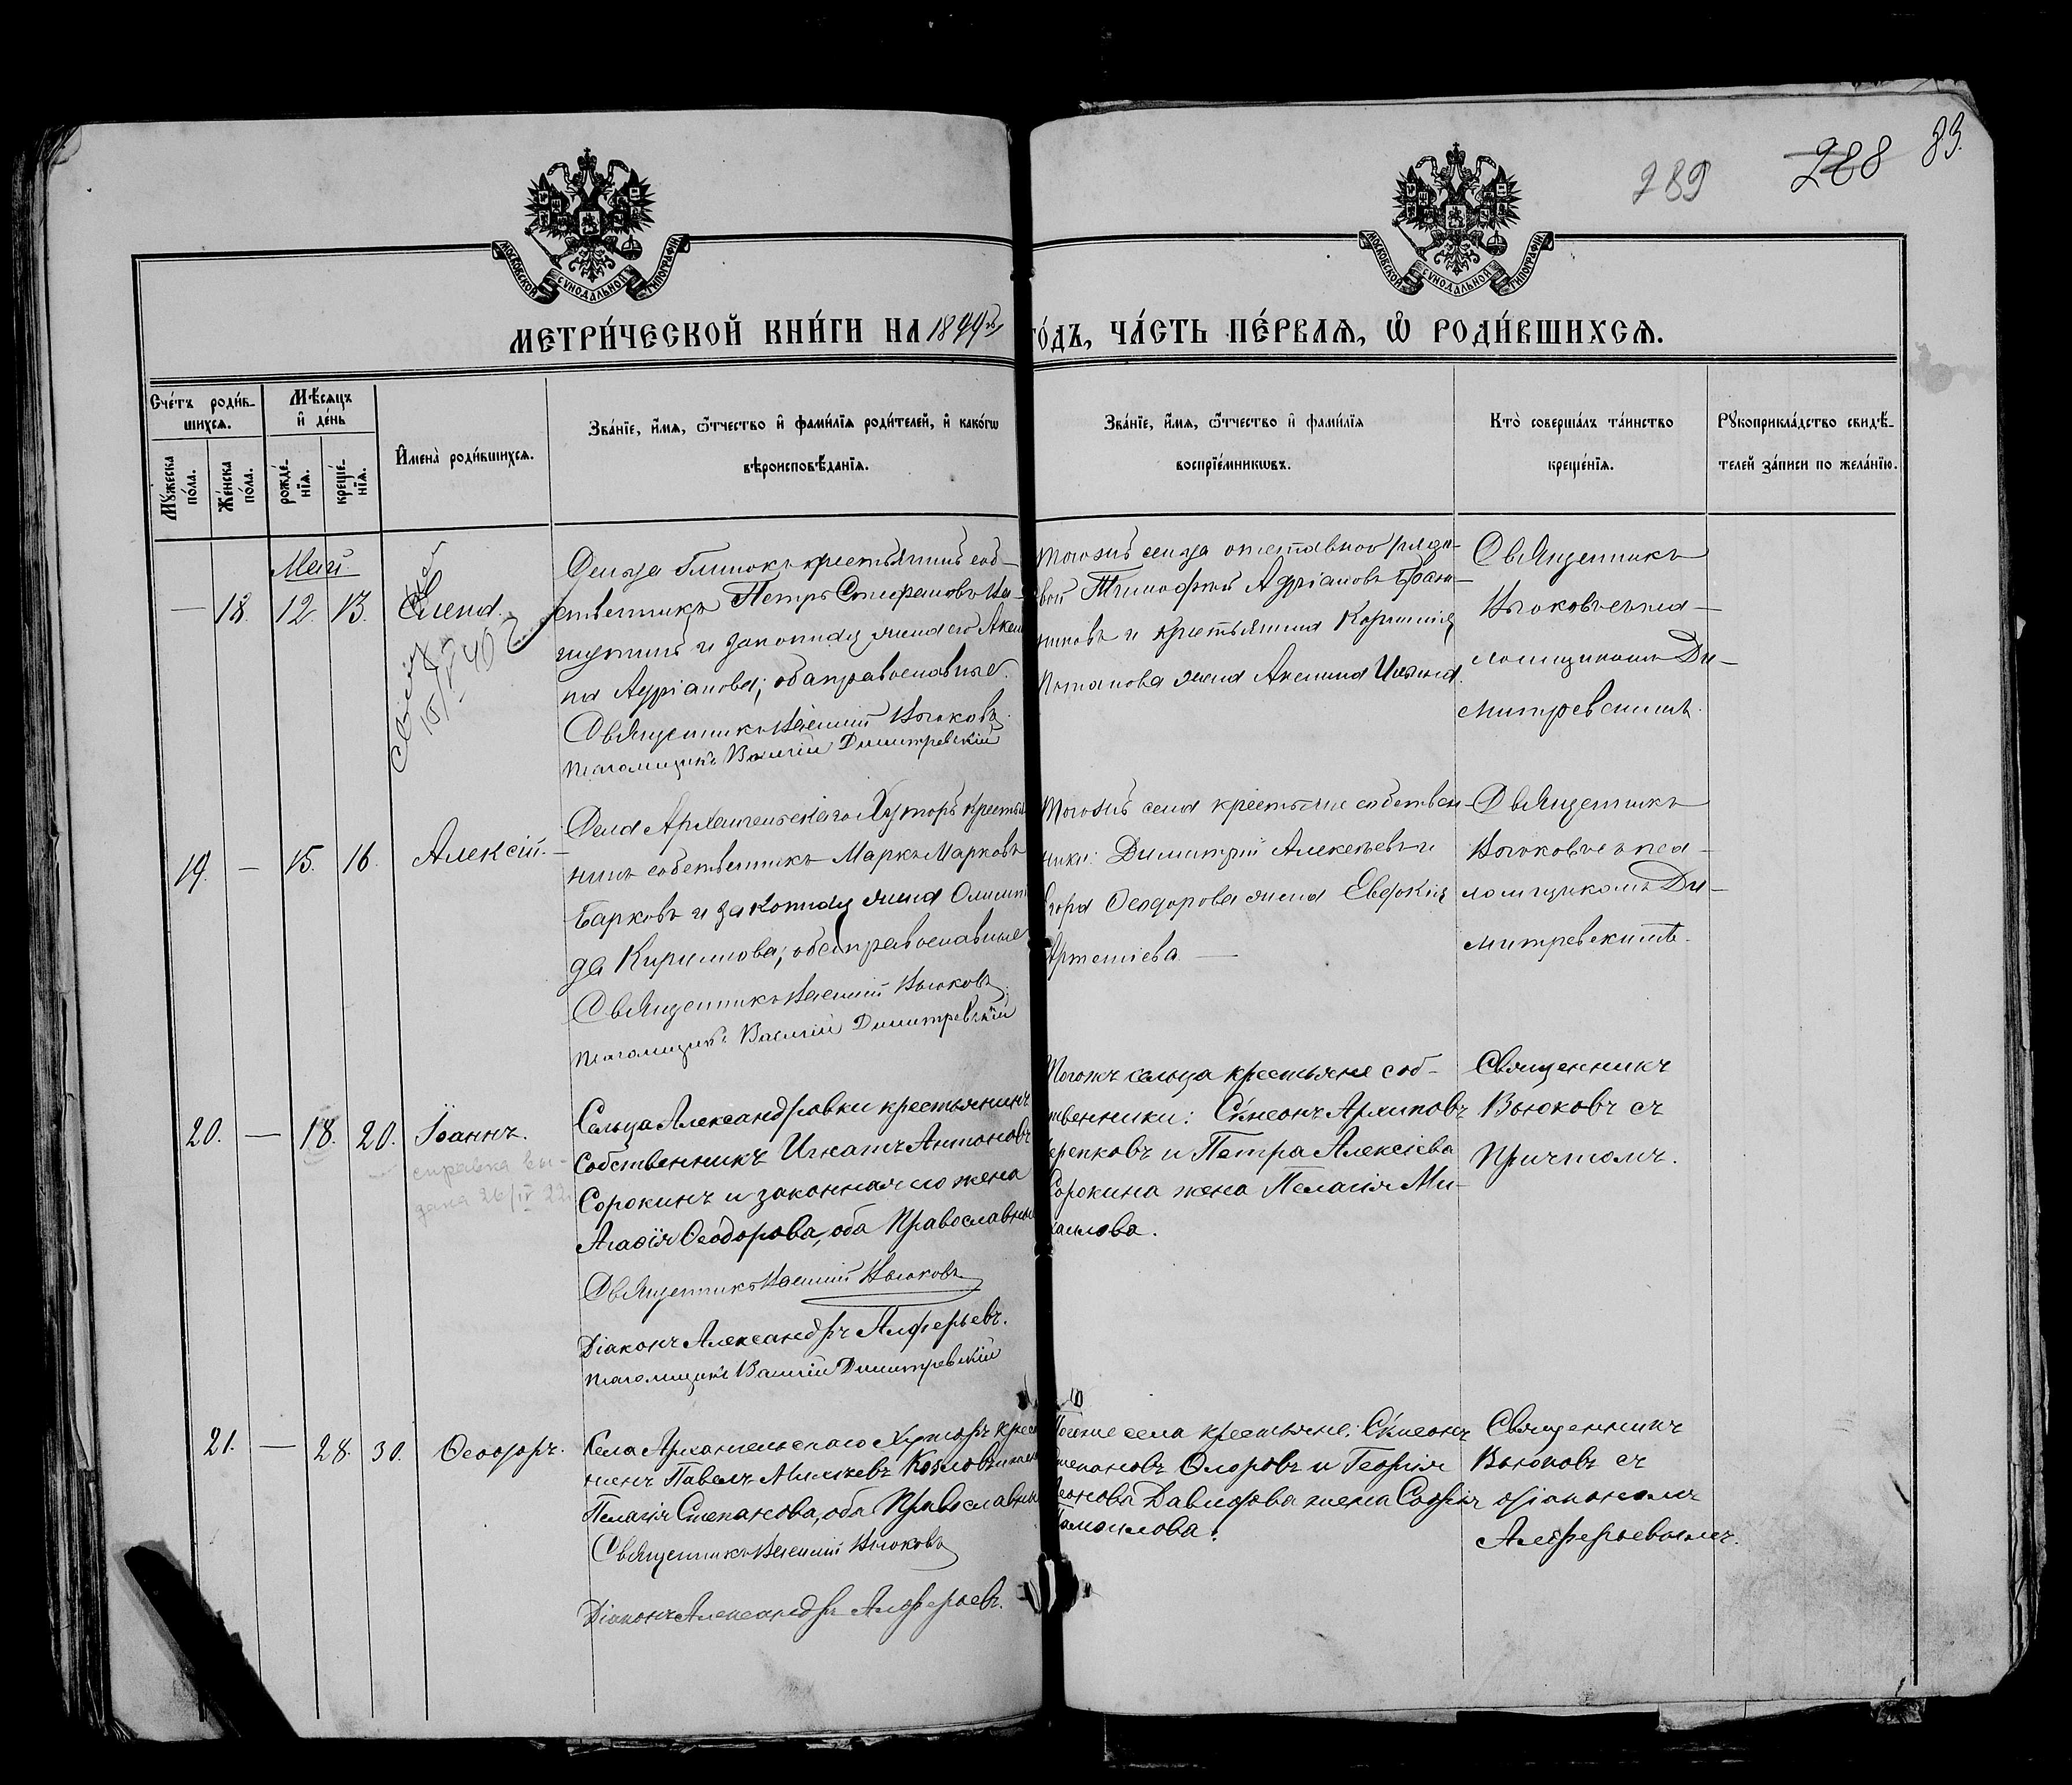 289 288 83.
МОСКОВСКОЙ СѴНОДАЛЬНОЙ ТИПОГРАФІИ
МОСКОВСКОЙ СѴНОДАЛЬНОЙ ТИПОГРАФІИ
МЕТРИ́ЧЕСКОЙ КНИ́ГИ НА 1899й
ГО́ДЪ, ЧА́СТЬ ПЕ́РВАЯ, Ѡ҆ РОДИ́ВШИХСЯ.
Сче́тъ роди́в-
шихся.
Мꙋ́жеска по́ла.
Же́нска по́ла.
Мѣ́сяцъ
и҆ де́нь
рожде́-
нїя.
креще́-
нїя.
И҆мена̀ роди́вшихся.
Зва́нїе, и҆́мя, ѻ҆́тчество и҆ фами́лїя роди́телей, и҆ како́гѡ
вѣроисповѣ́данїя.
Зва́нїе, и҆́мя, ѻ҆́тчество и҆ фами́лїя
воспрїе́мникѡвъ.
Кто̀ соверша́лъ та́инство
креще́нїя.
Рꙋкоприкла́дство свидѣ́-
телей за́писи по жела́нїю.
Май
— 18. 12. 13.
Елена.
15/V 40 г.
крестьянинъ соб-
ственникъ Петръ Стефановъ
и законная жена его
на Адріанова; оба православные.
Священникъ Василій Вьюковъ.
Псаломщикъ Василій Димитревскій
Тогожъ сельца отставной рядо-
вой Тимофей Адріановъ
и крестьянина
Потапова жена Акилина
Священникъ
Вьюковъ съ пса-
ломщикомъ Ди-
митревскимъ.
19. — 15. 16.
Алексій.
Села Архангельскаго Хуторъ крестья
нинъ собственникъ Маркъ Марковъ
Барковъ и законная жена
да Кирилова; оба православные
Священникъ Василій Вьюковъ.
Псаломщикъ Василій Димитревскій
Тогожъ села крестьяне собствен-
ники: Димитрій Алексѣевъ и
Егора Ѳеодорова жена Евдокія
Артемiева —
Священникъ
Вьюковъ съ пса-
ломщикомъ Ди-
митревскимъ.
20. — 18. 20.
Іоаннъ.
справка вы-
дана 26/IV 22
Сельца Александровки крестьянинъ
собственникъ Игнатъ Антоновъ
Сорокинъ и законная его жена
Агаѳія Ѳеодорова, оба Православны
Священникъ Василій Вьюковъ
Діаконъ Александръ Алферьевъ.
Псаломщикъ Василій Димитревскій
Тогожъ сельца крестьяне соб-
ственники: Сѵмеонъ Архиповъ
и Петра Алексіева
Сорокина жена Пелагія Ми-
хаилова.
Священникъ
Вьюковъ съ
Причтомъ.
21. — 28. 30.
Ѳеодоръ.
Села Архангельскаго Хуторъ кресть
нинъ Павелъ Козловъ
Пелагія Степанова, оба Православны
Священникъ Василій Вьюковъ
Діаконъ Александръ Алферьевъ.
села крестьяне: Сѵмеонъ
Степановъ и Георгія
Давыдова жена Софія
Священникъ
Вьюковъ съ
діакономъ
Алферьевымъ.